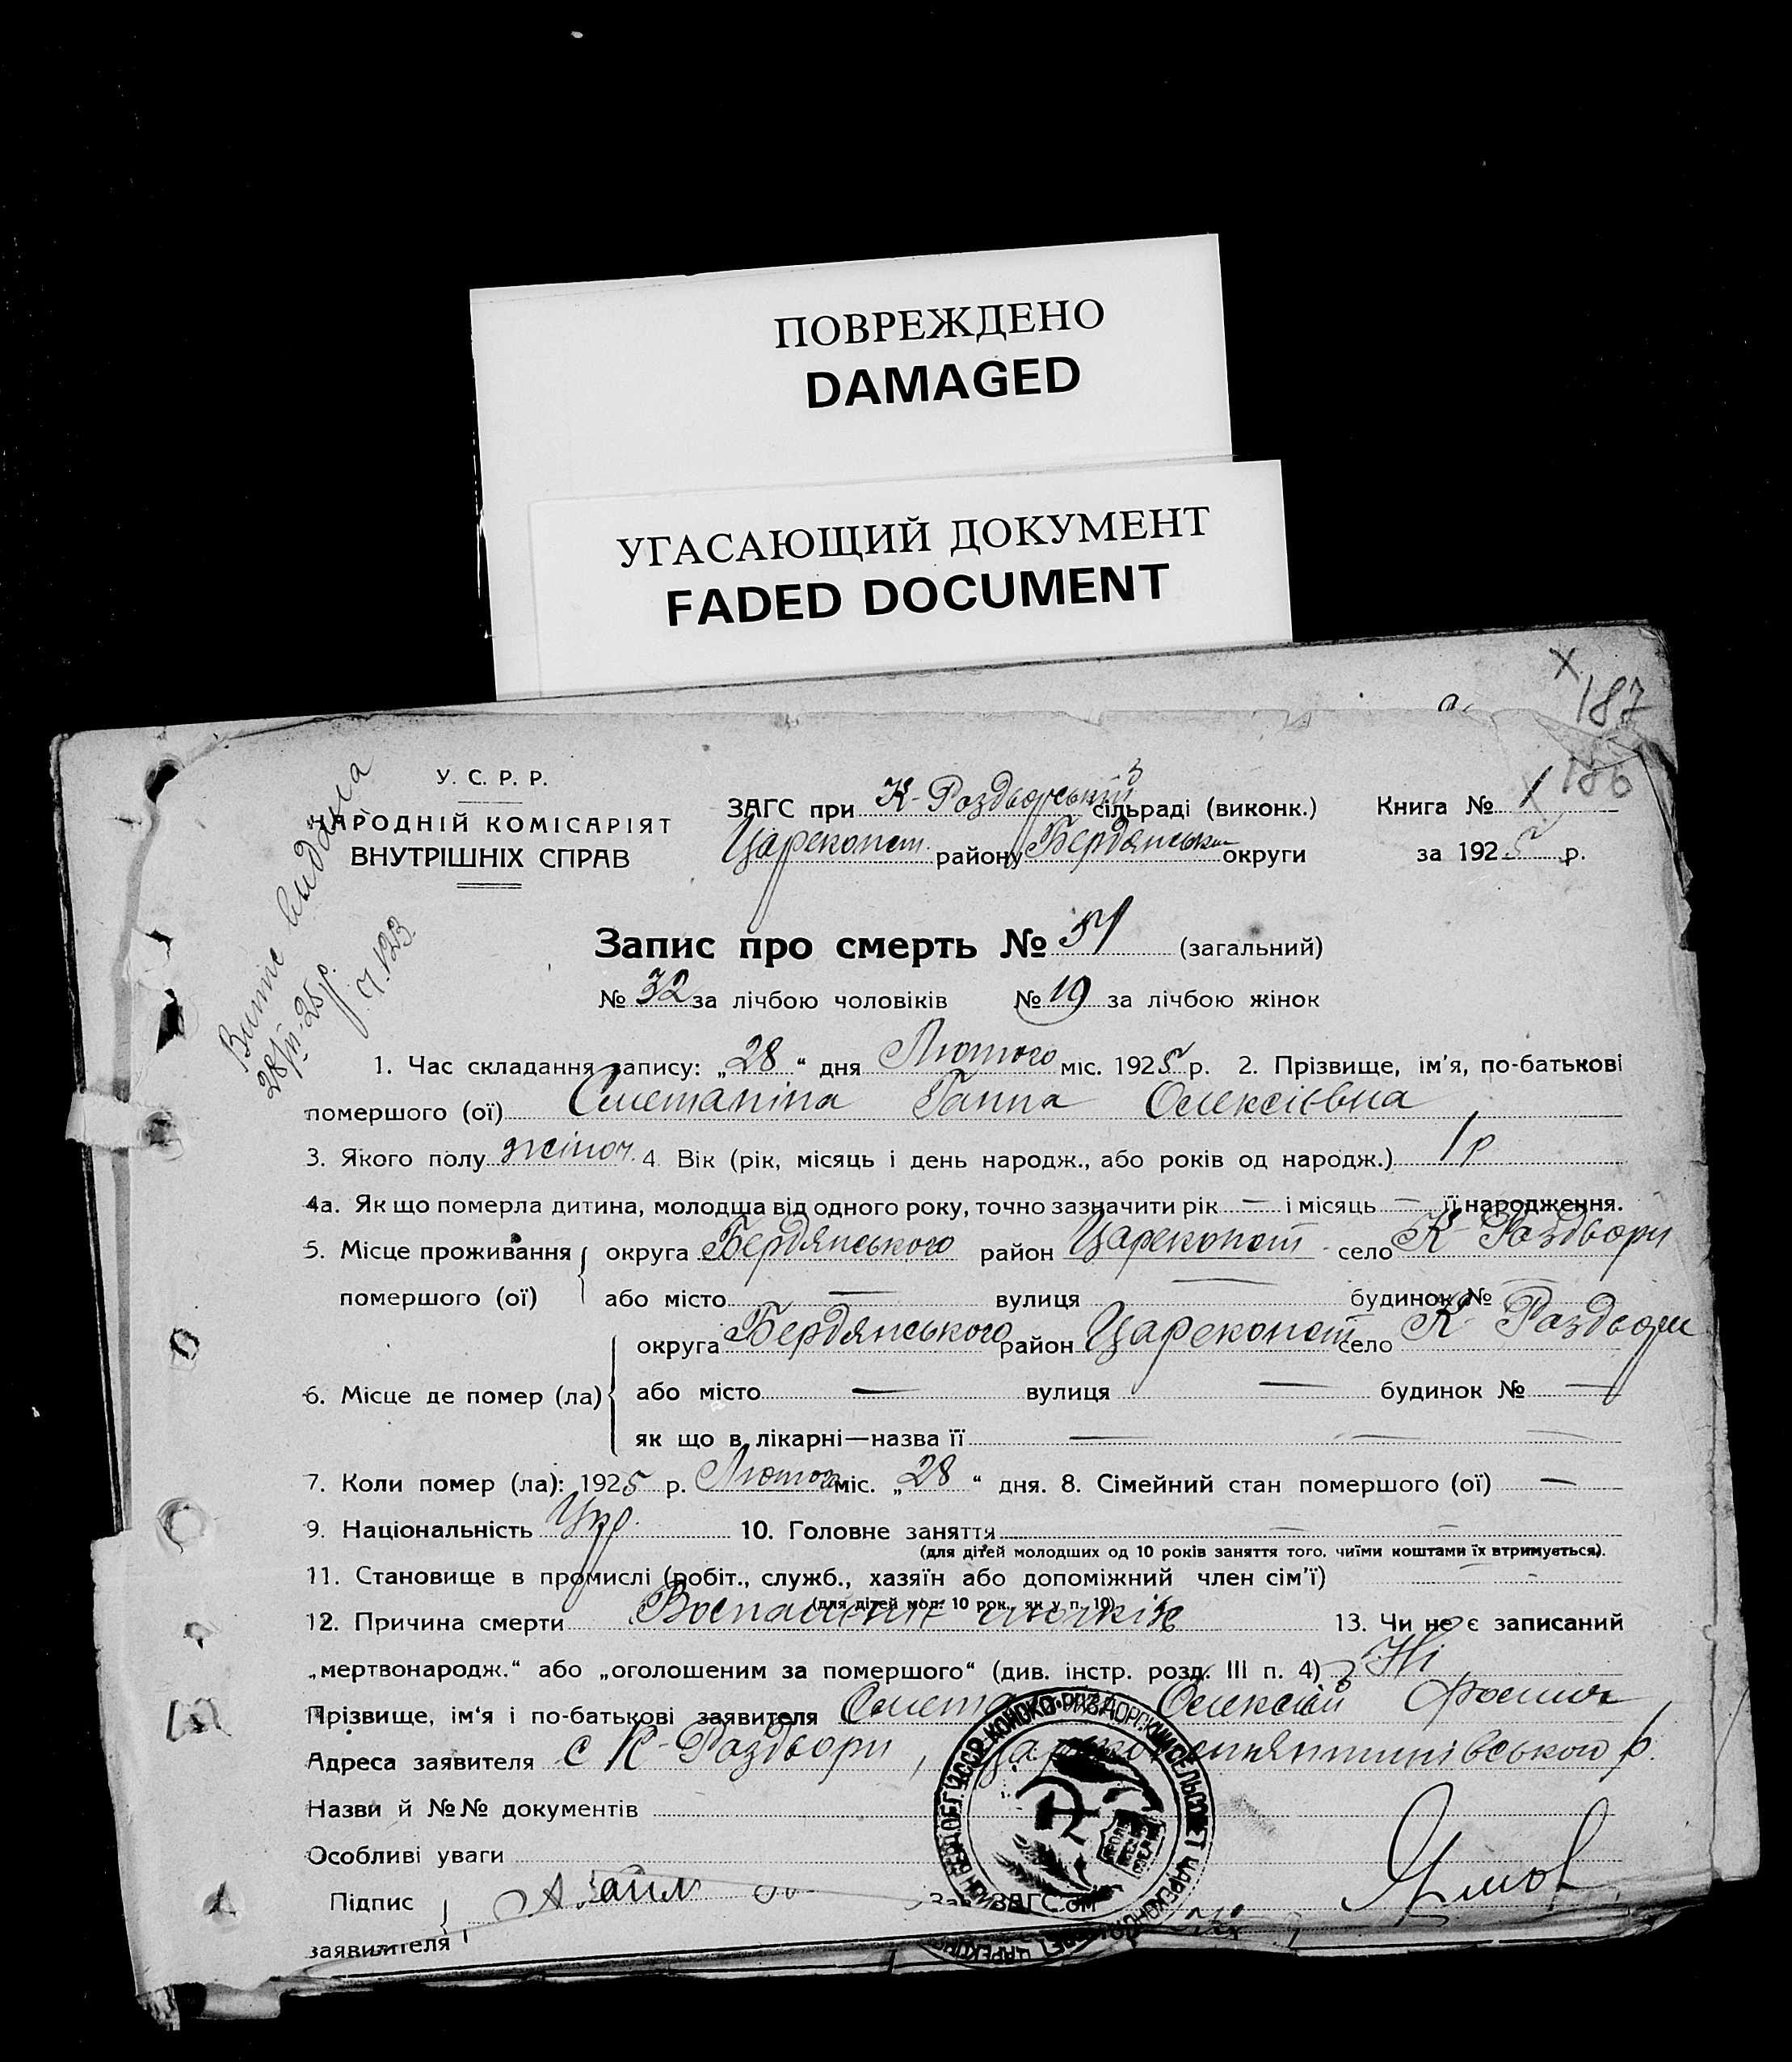 ПОВРЕЖДЕНО
DAMAGED
УГАСАЮЩИЙ ДОКУМЕНТ
FADED DOCUMENT
X 187
186
У. С. Р. Р.
НАРОДНІЙ КОМІСАРІЯТ
ВНУТРІШНІХ СПРАВ
ЗАГС при К-Роздорський сільраді (виконк.) Книга № 1
Цареконст. району Бердянськ округи за 1925 р.
Витяг видана
28/III-25 р.
ч. 123
Запис про смерть № 51 (загальний)
№ 32 за лічбою чоловіків № 19 за лічбою жінок
1. Час складання запису: „28“ дня Лютого міс. 1925 р. 2. Прізвище, ім'я, по-батькові
помершого (ої) Сметаніна Ганна Олексіївна
3. Якого полу жіноч. 4. Вік (рік, місяць і день народж., або років од народж.) 1 р
4а. Як що померла дитина, молодща від одного року, точно зазначити рік — і місяць — її народження.
5. Місце проживання округа Бердянського район Цареконст село К-Роздори
помершого (ої) або місто — вулиця — будинок № —
округа Бердянського район Цареконст село К-Роздори
6. Місце де помер (ла) або місто — вулиця — будинок № —
як що в лікарні—назва її —
7. Коли помер (ла): 1925 р. Лютого міс. „28“ дня. 8. Сімейний стан помершого (ої) —
9. Національність Укр. 10. Головне заняття —
(для дітей молодших од 10 років заняття того, чиїми коштами їх втримується).
11. Становище в промислі (робіт., служб., хазяїн або допоміжний член сім'ї) —
(для дітей мол. 10 рок., як у п. 10)
12. Причина смерти 13. Чи не є записаний
„мертвонародж.“ або „оголошеним за помершого“ (див. інстр. розд. III п. 4) Ні
Прізвище, ім'я і по-батькові заявителя Смета Олексій
Адреса заявителя с К-Роздори, Царекостянтинівського р.
Назви й №№ документів
Особливі уваги
Підпис
заявителя
Зав. ЗАГС'ом
КОНСКО-РАЗДОРСКИЙ СЕЛЬСОВЕТ